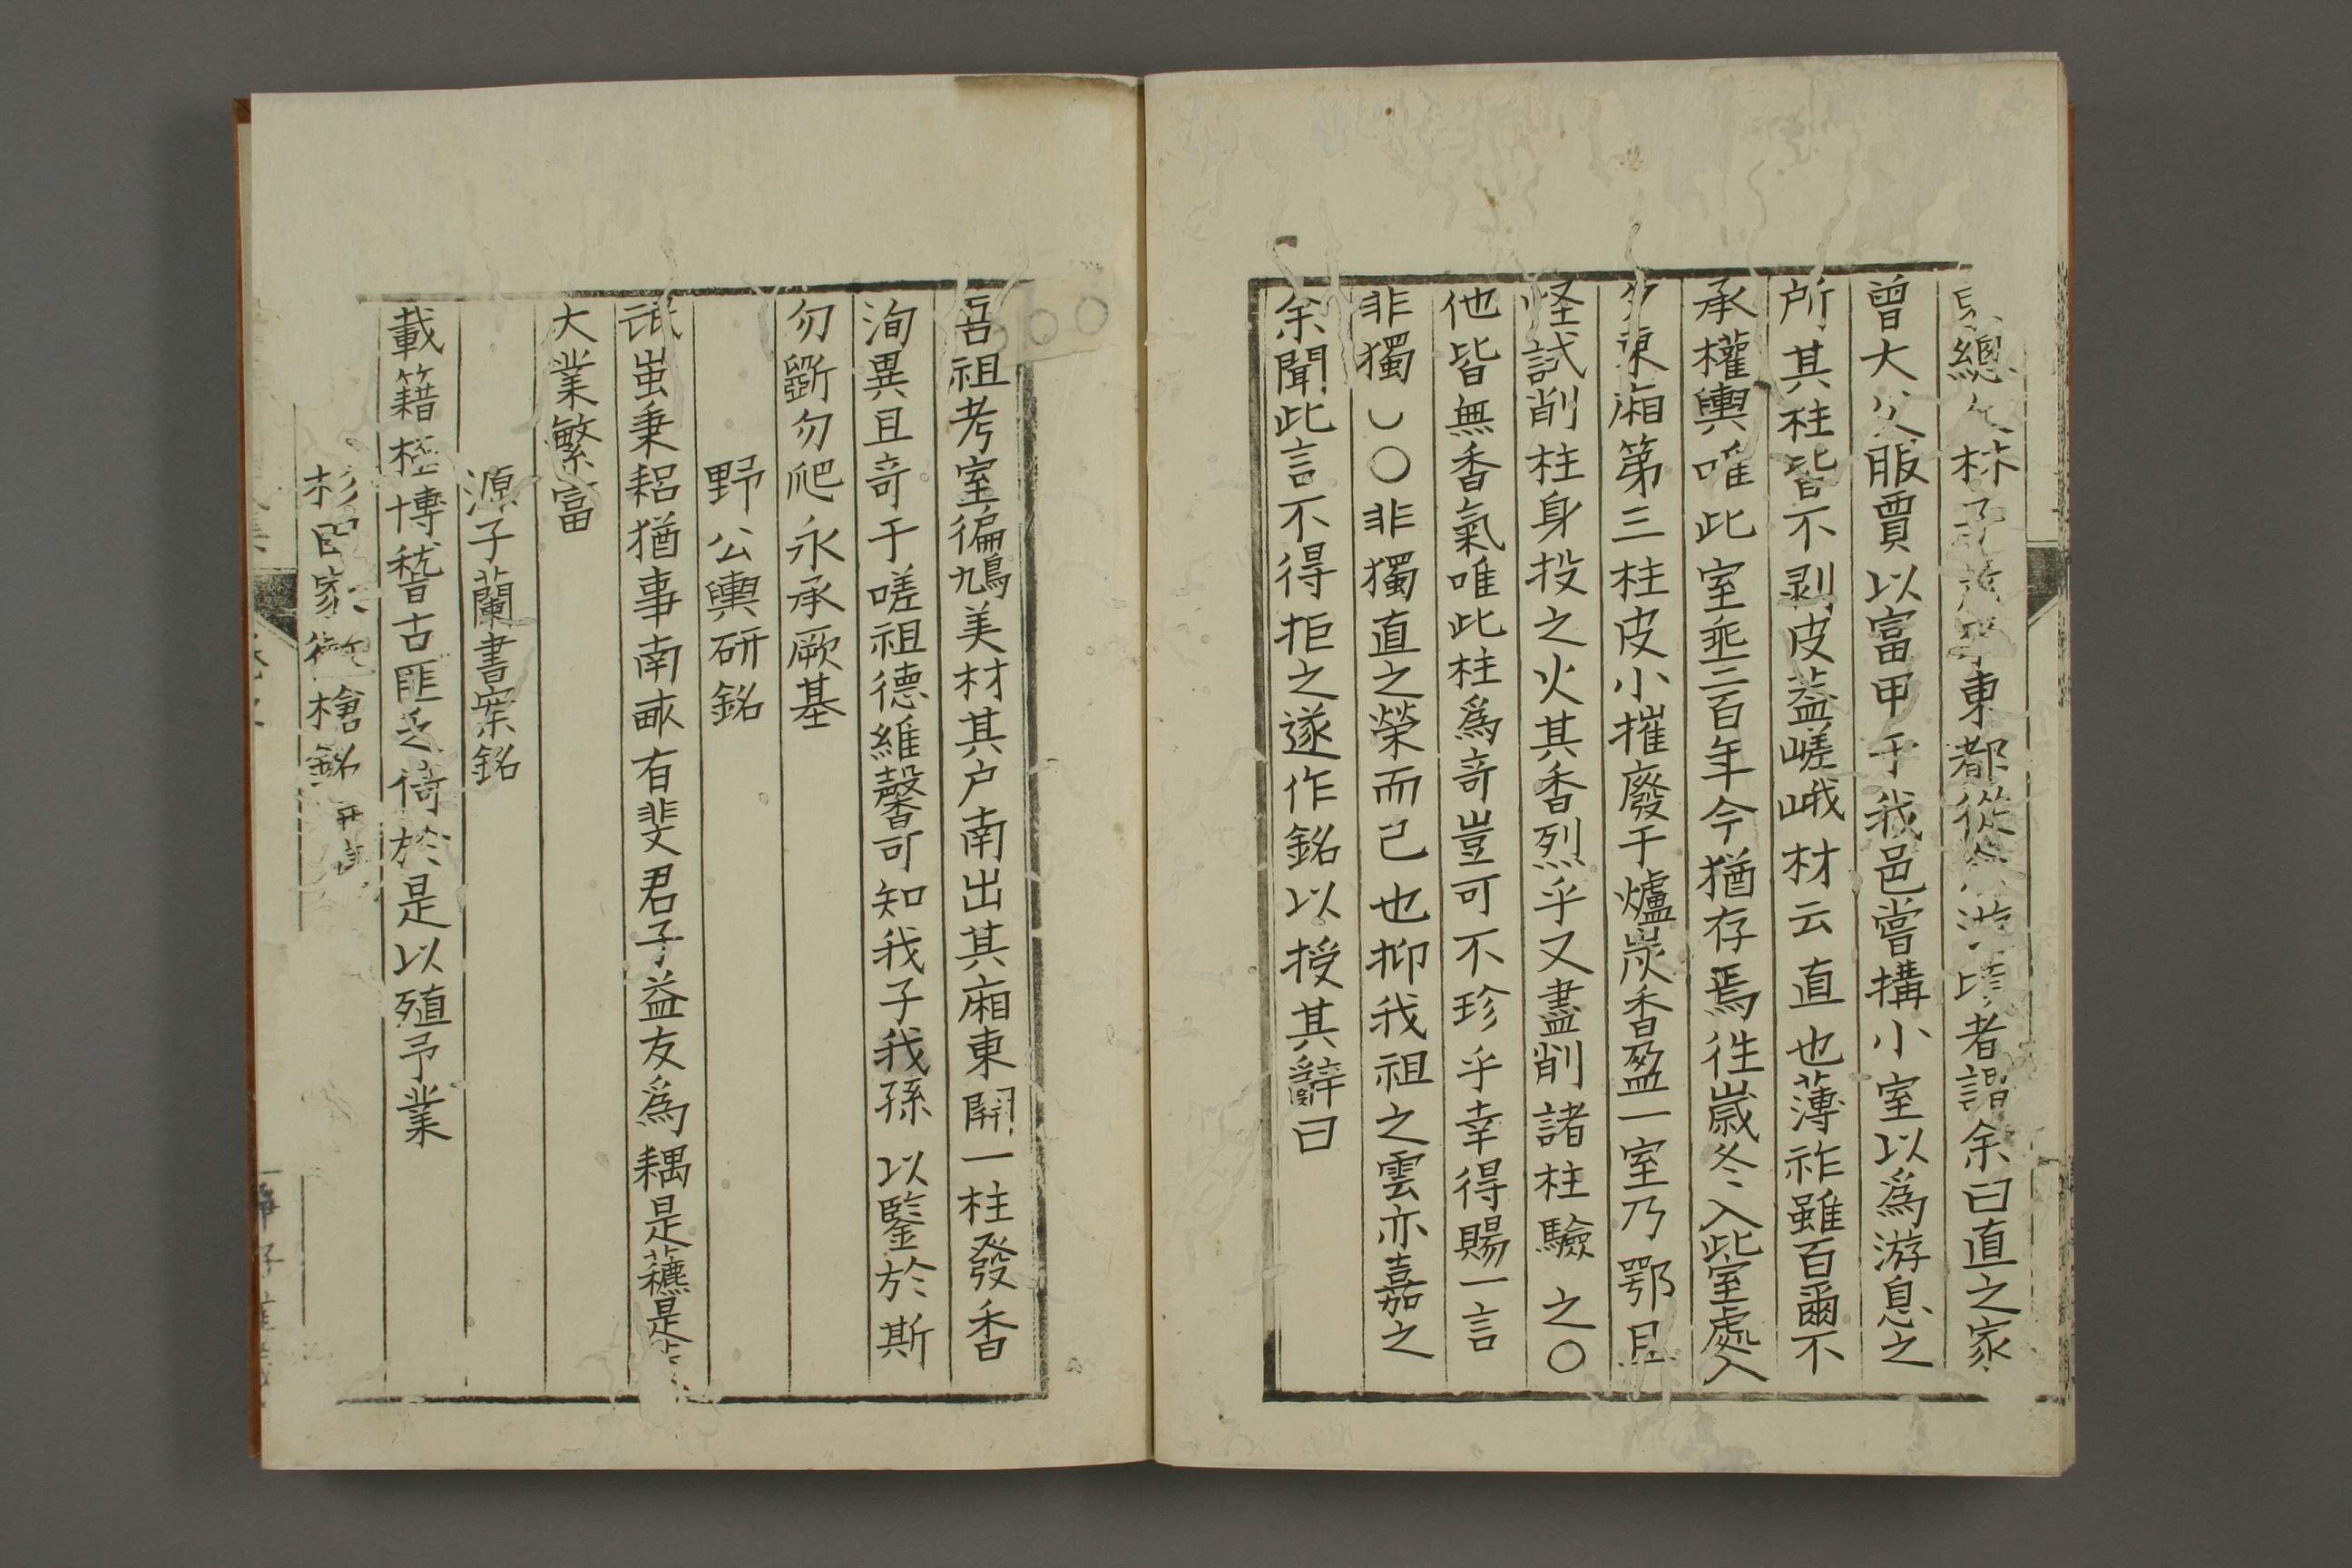 總 林子 東都從 游頃者謂余曰直之家
曾大父服賈以富甲于我邑嘗搆小室以爲游息之
所其柱皆不剥皮葢嵯峨材云直也薄祚雖百爾不
承權輿唯此室垂三百年今猶存焉徃嵗冬入此室處入
夕東廂第三柱皮小摧廢于爐炭香盈一室乃鄂且
怪試削柱身投之火其香烈乎又盡削諸柱驗之〇
他皆無香氣唯此柱爲竒豈可不珍乎幸得賜一言
非獨 〇非獨直之榮而已也抑我祖之雲亦嘉之
余聞此言不得拒之遂作銘以授其辭曰
吾祖考室徧鳩美材其户南出其廂東開一柱發香
洵異且竒于嗟祖德維馨可知我子我孫以鑒於斯
勿斵勿爬永承厥基
野公輿研銘
氓蚩秉耜猶事南畝有斐君子益友爲耦是藨是
大業繁富
源子蘭書案銘
載籍極博稽古匪乏倚於是以殖予業
杉 家 槍銘